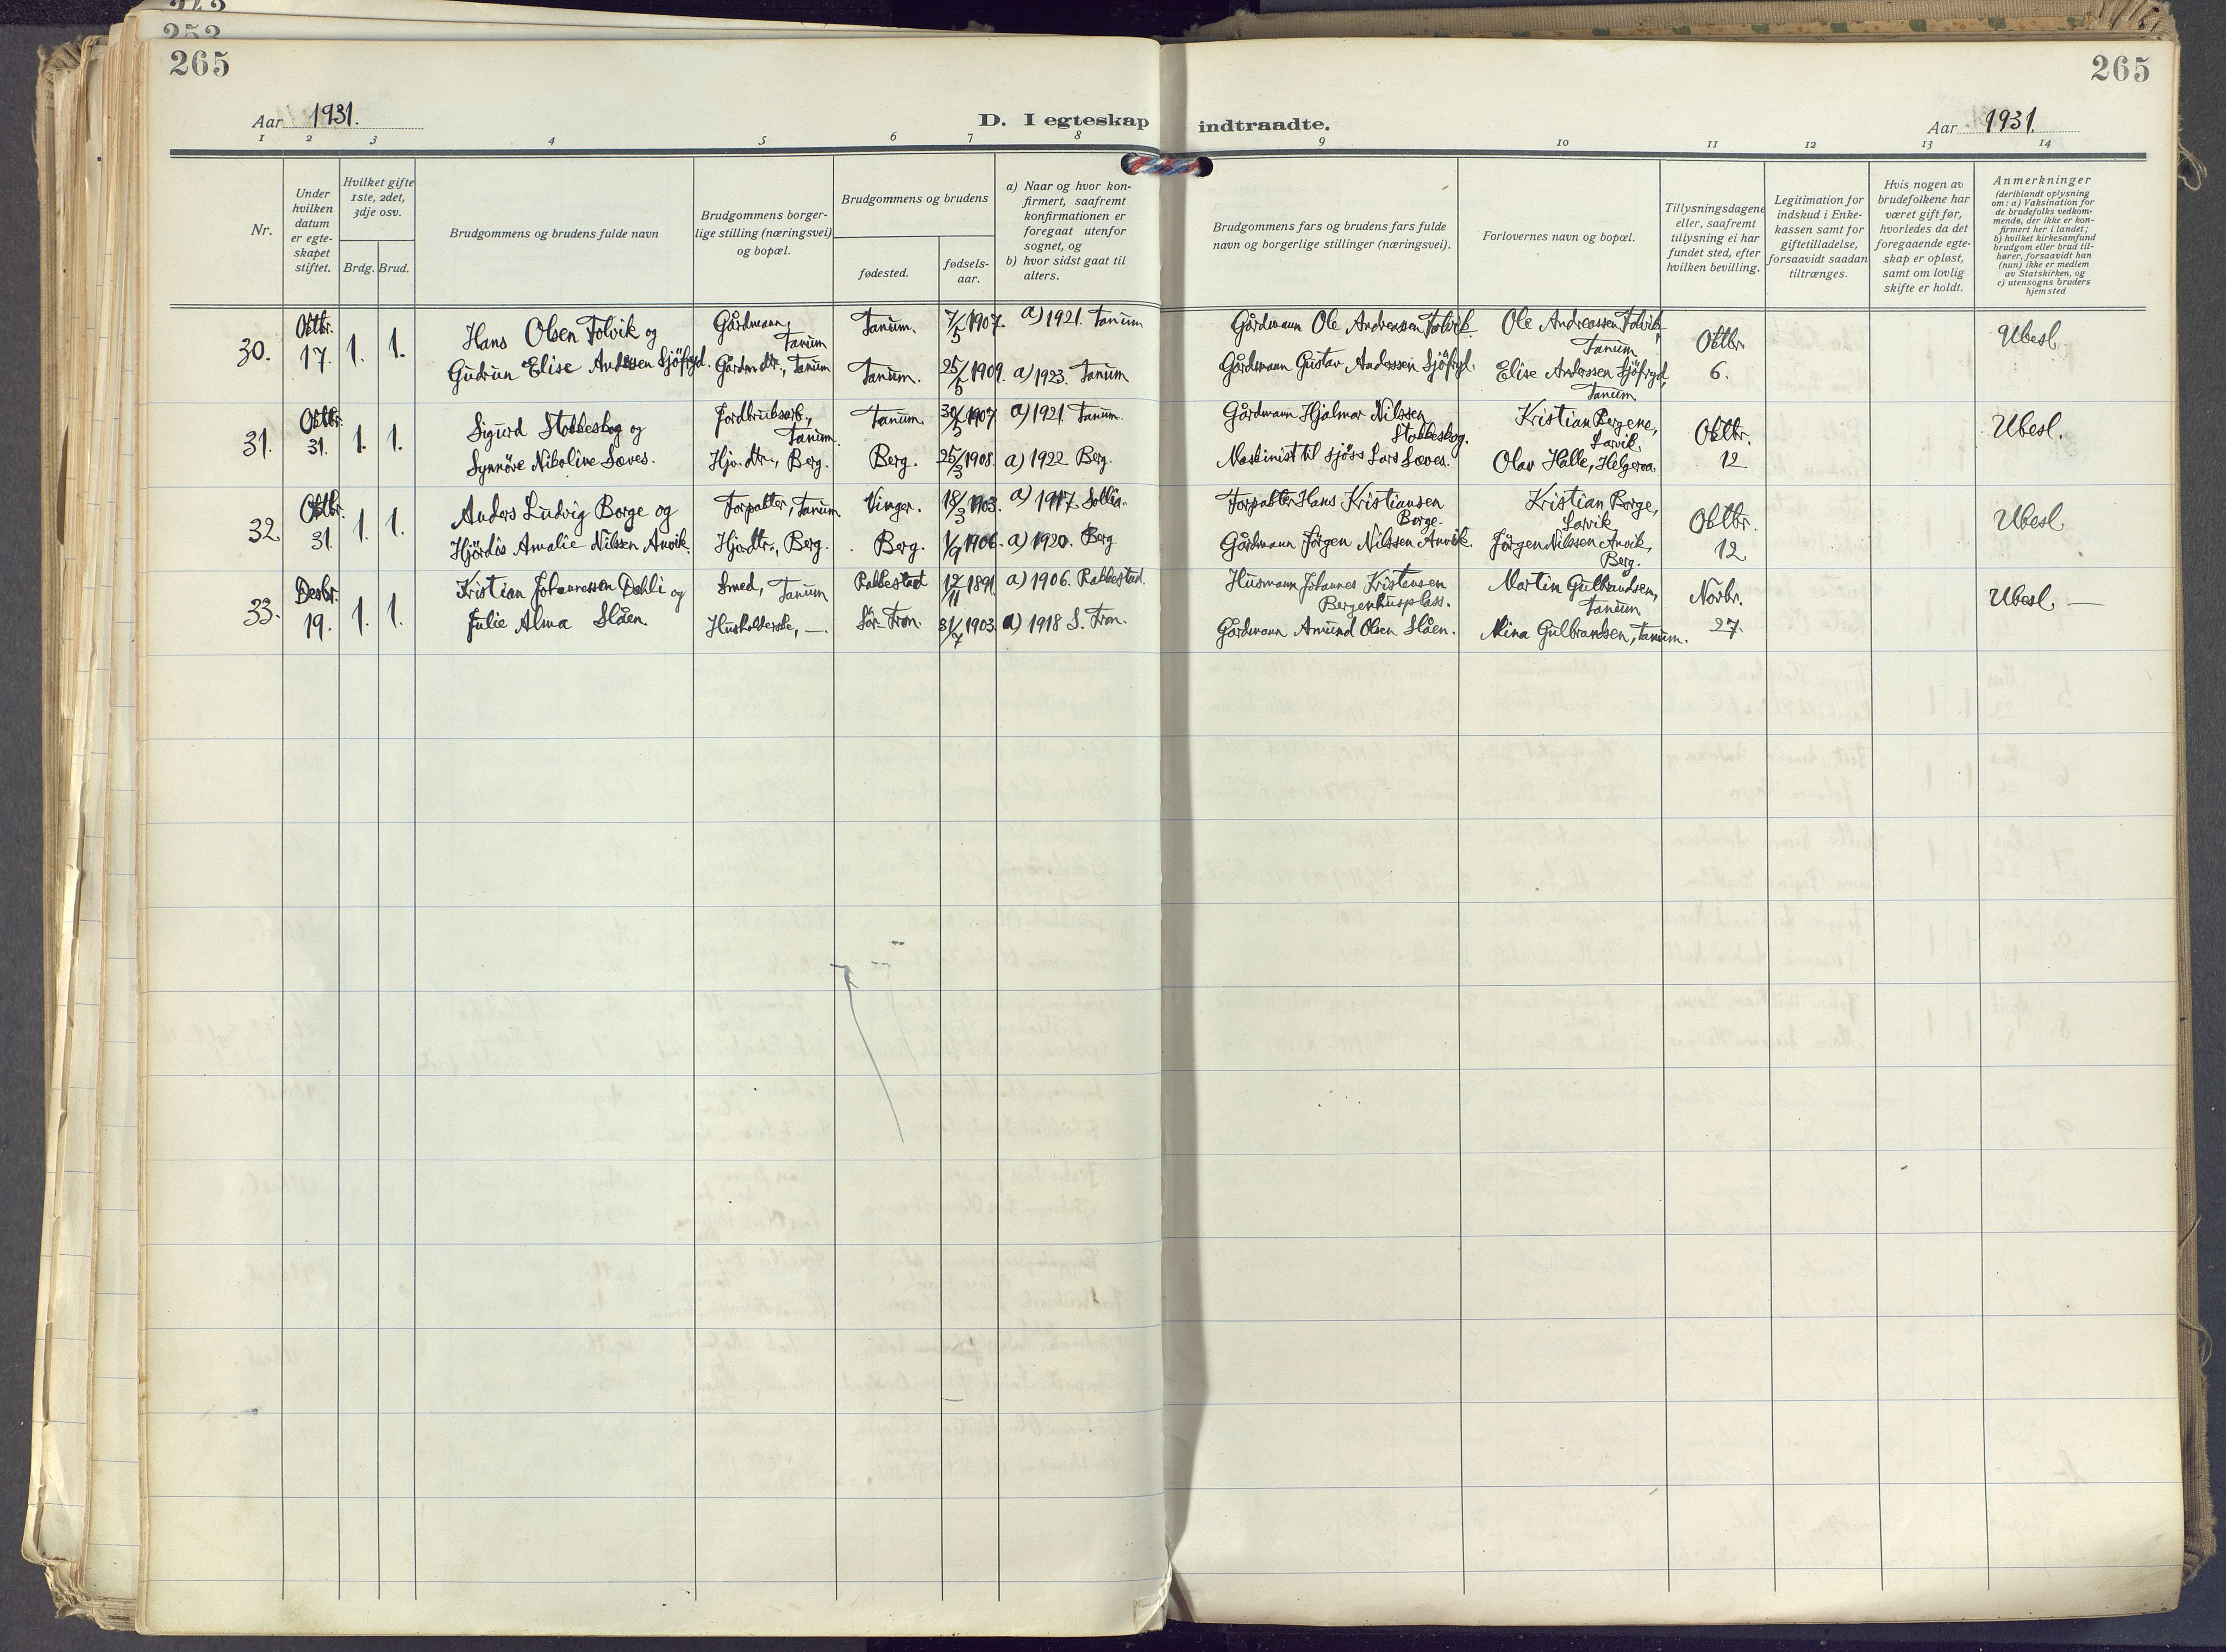 253
265
265
Aar 1931.
D. I egteskap indtraadte.
Aar 1931.
1 2 3 4 5 6 7 8 9 10 11 12 13 14
Nr.
Under hvilken datum er egteskapet stiftet.
Hvilket gifte 1ste, 2det, 3dje osv.
Brdg. Brud.
Brudgommens og brudens fulde navn
Brudgommens borgerlige stilling (næringsvei) og bopæl.
Brudgommens og brudens
fødested.
fødselsaar.
a) Naar og hvor konfirmert, saafremt konfirmationen er foregaat utenfor sognet, og
b) hvor sidst gaat til alters.
Brudgommens fars og brudens fars fulde navn og borgerlige stillinger (næringsvei).
Forlovernes navn og bopæl.
Tillysningsdagene eller, saafremt tillysning ei har fundet sted, efter hvilken bevilling.
Legitimation for indskud i Enkekassen samt for giftetilladelse, forsaavidt saadan tiltrænges.
Hvis nogen av brudefolkene har været gift før, hvorledes da det foregaaende egteskap er opløst, samt om lovlig skifte er holdt.
Anmerkninger
(deriblandt oplysning om: a) Vaksination for de brudefolks vedkommende, der ikke er konfirmert her i landet;
b) hvilket kirkesamfund brudgom eller brud tilhører, forsaavidt han (nun) ikke er medlem av Statskirken, og
c) utensogns bruders hjemsted
30. Oktbr. 17. 1. 1. Hans Olsen Folvik og Gårdmann, Tanum Tanum. 7/5 1907. a) 1921. Tanum Gårdmann Ole Andreassen Folvik Ole Andreassen Folvik, Tanum Oktbr. 6. Ubesl.
Gudrun Elise Anderssen Sjöfryd. Gårdm.dtr., Tanum Tanum. 25/5 1909. a) 1923. Tanum Gårdmann Gustav Anderssen Sjöfryd. Elise Anderssen Sjöfryd, Tanum
31. Oktbr. 31. 1. 1. Sigurd Stokkeskog og Jordbruksarb., Tanum. Tanum. 1907. a) 1921 Tanum. Gårdmann Hjalmar Nilssen Stokkeskog. Kristian Bergene, Larvik Oktbr. 12 Ubesl.
Synnöve Nikoline Sæves. Hjv. dtr., Berg. Berg. 25/3 1908. a) 1922 Berg. Maskinist til sjöss Lars Sæves. Olav Halle, Helgeroa
32. Oktbr. 31. 1. 1. Anders Ludvig Borge og Forpakter, Tanum Vinger. 18/3 1903. a) 1917 Forpakter Hans Kristiansen Borge. Kristian Borge, Larvik Oktbr. 12 Ubesl
Hjördis Amalie Nilssen Anvik. Hjv.dtr., Berg. Berg. 1/9 1906. a) 1920. Berg Gårdmann Jörgen Nilssen Anvik. Jörgen Nilssen Anvik, Berg.
33. Desbr. 19. 1. 1. Kristian Johannessen Dahli og Smed, Tanum Rakkestad 17/11 1891 a) 1906. Rakkestad. Husmann Johannes Kristensen Bergenhusplass. Martin Gulbrandsen, Tanum Novbr. 27. Ubesl. —
Julie Alma Slåen. Husholderske, —. Sör-Fron. 31/7 1903 a) 1918 S. Fron. Gårdmann Amund Olsen Slåen. Mina Gulbrandsen, Tanum.